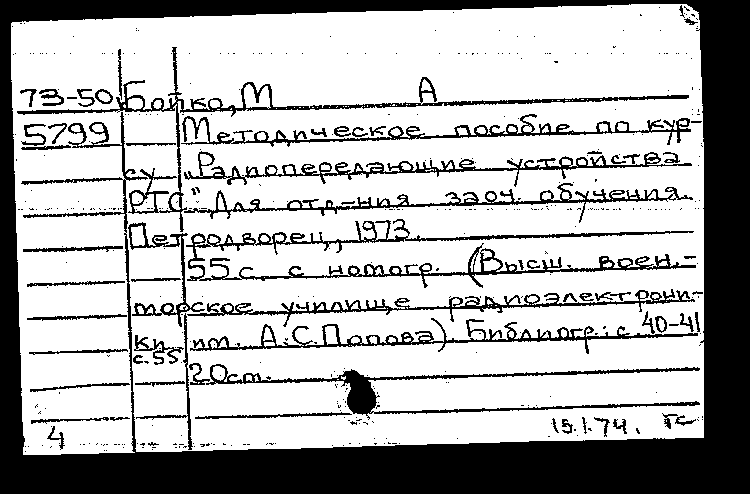 73-50 Бойко, М А
5799 Методическое пособие по кур-
су „Радиопередающие устройства
РТС" Для отд-ния заоч. обучения.
Петродворец, 1973.
55 с. с номогр. (Высш. воен.-
морское училище радиоэлектрони-
ки им. А.С.Попова). Библиогр.: с. 40-41
с.55.
20см.
4 15.1.74. ГС